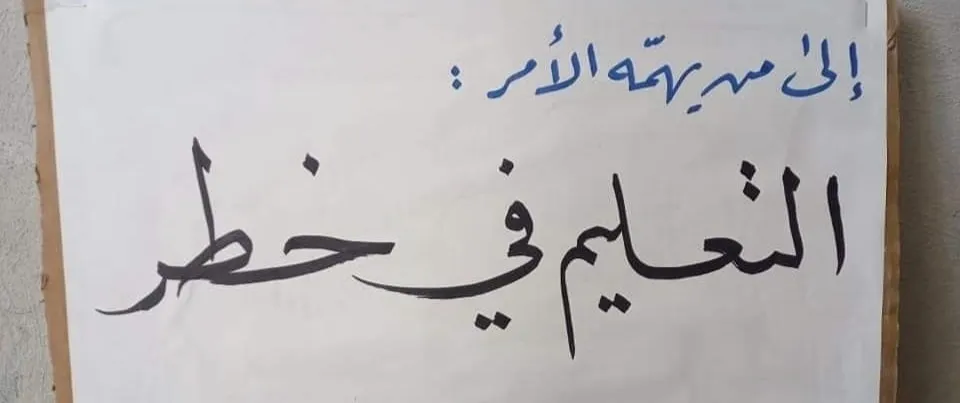 إلى من يهمّه الأمر :
التعليم في خطر